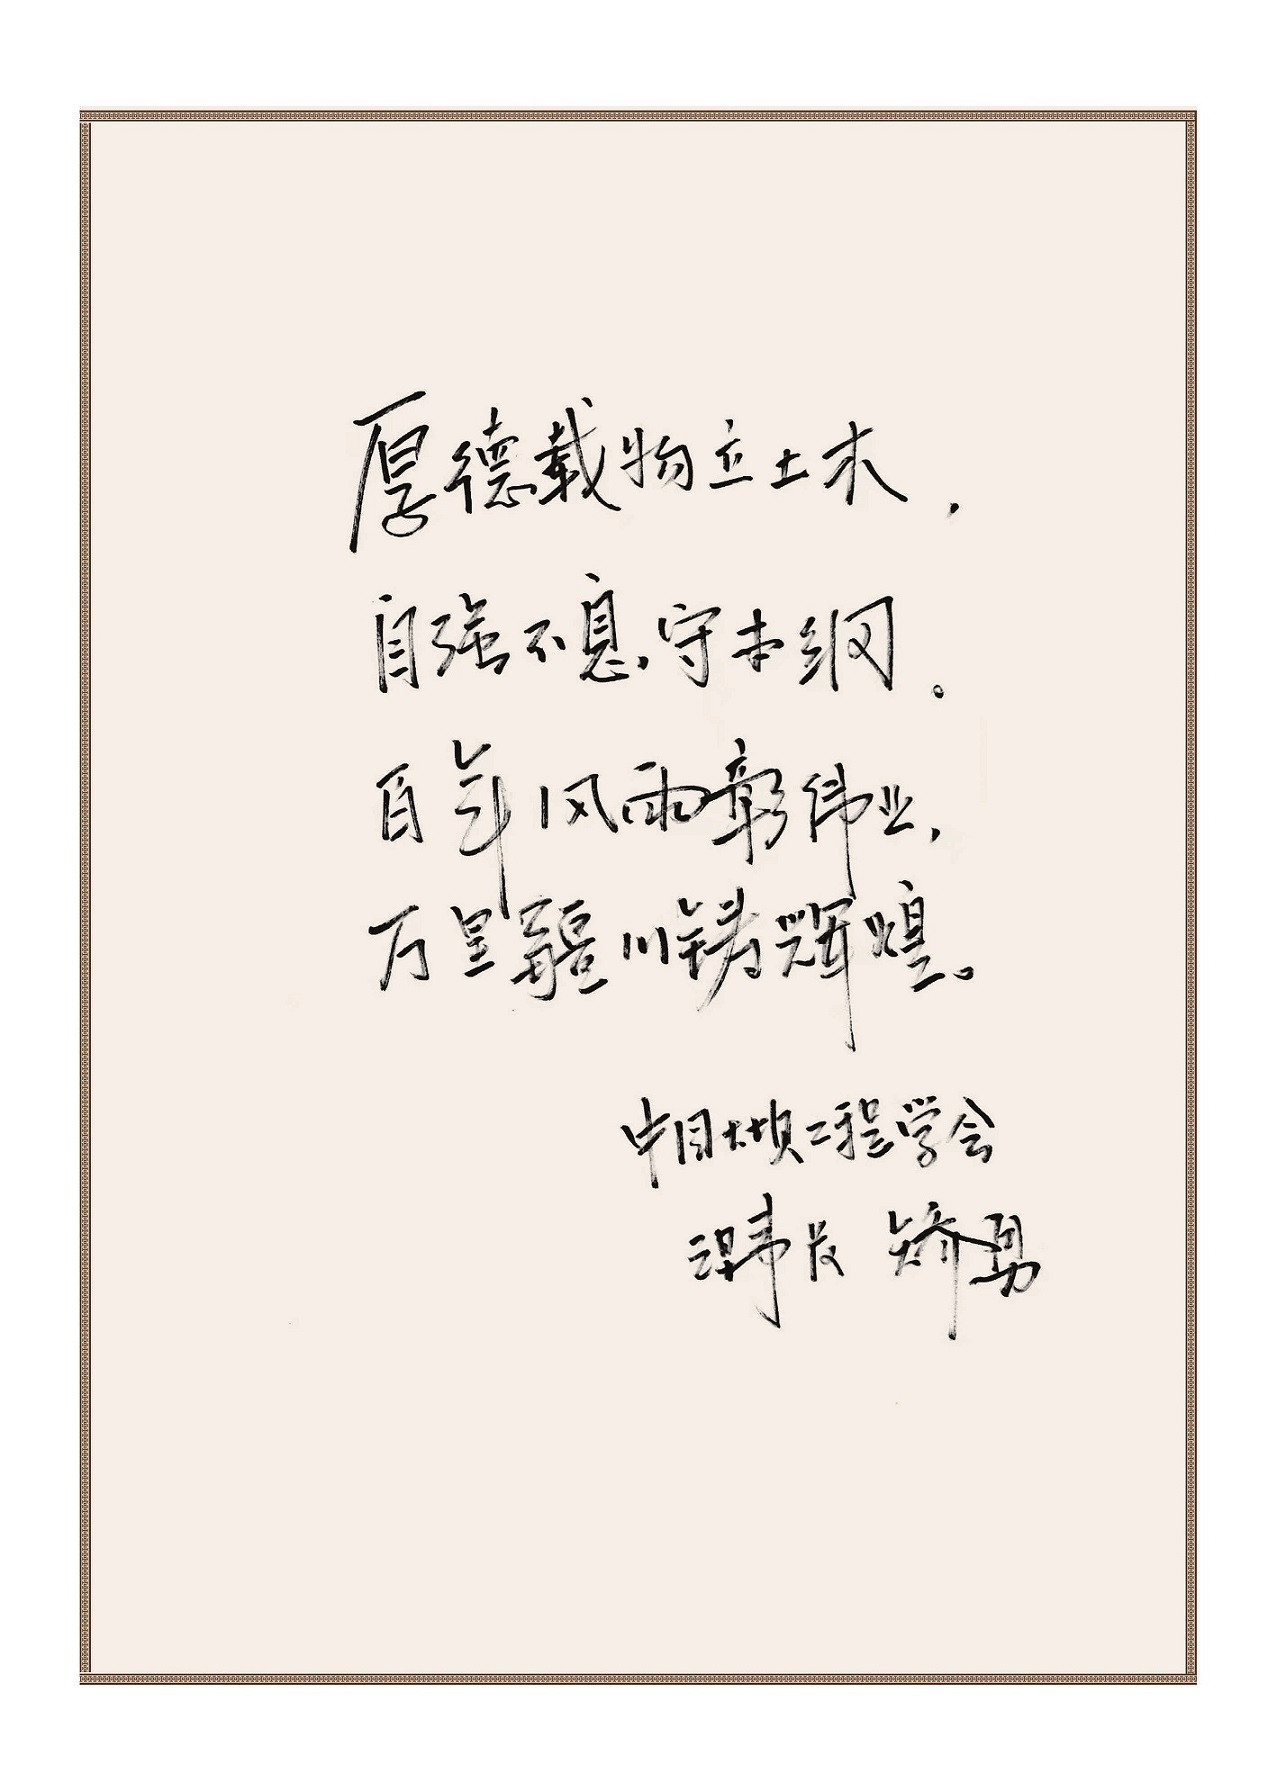 厚德载物立土木，
自强不息守本纲。
百年风雨彰伟业，
万里疆川铸辉煌。
中国大坝工程学会
理事长 矫勇